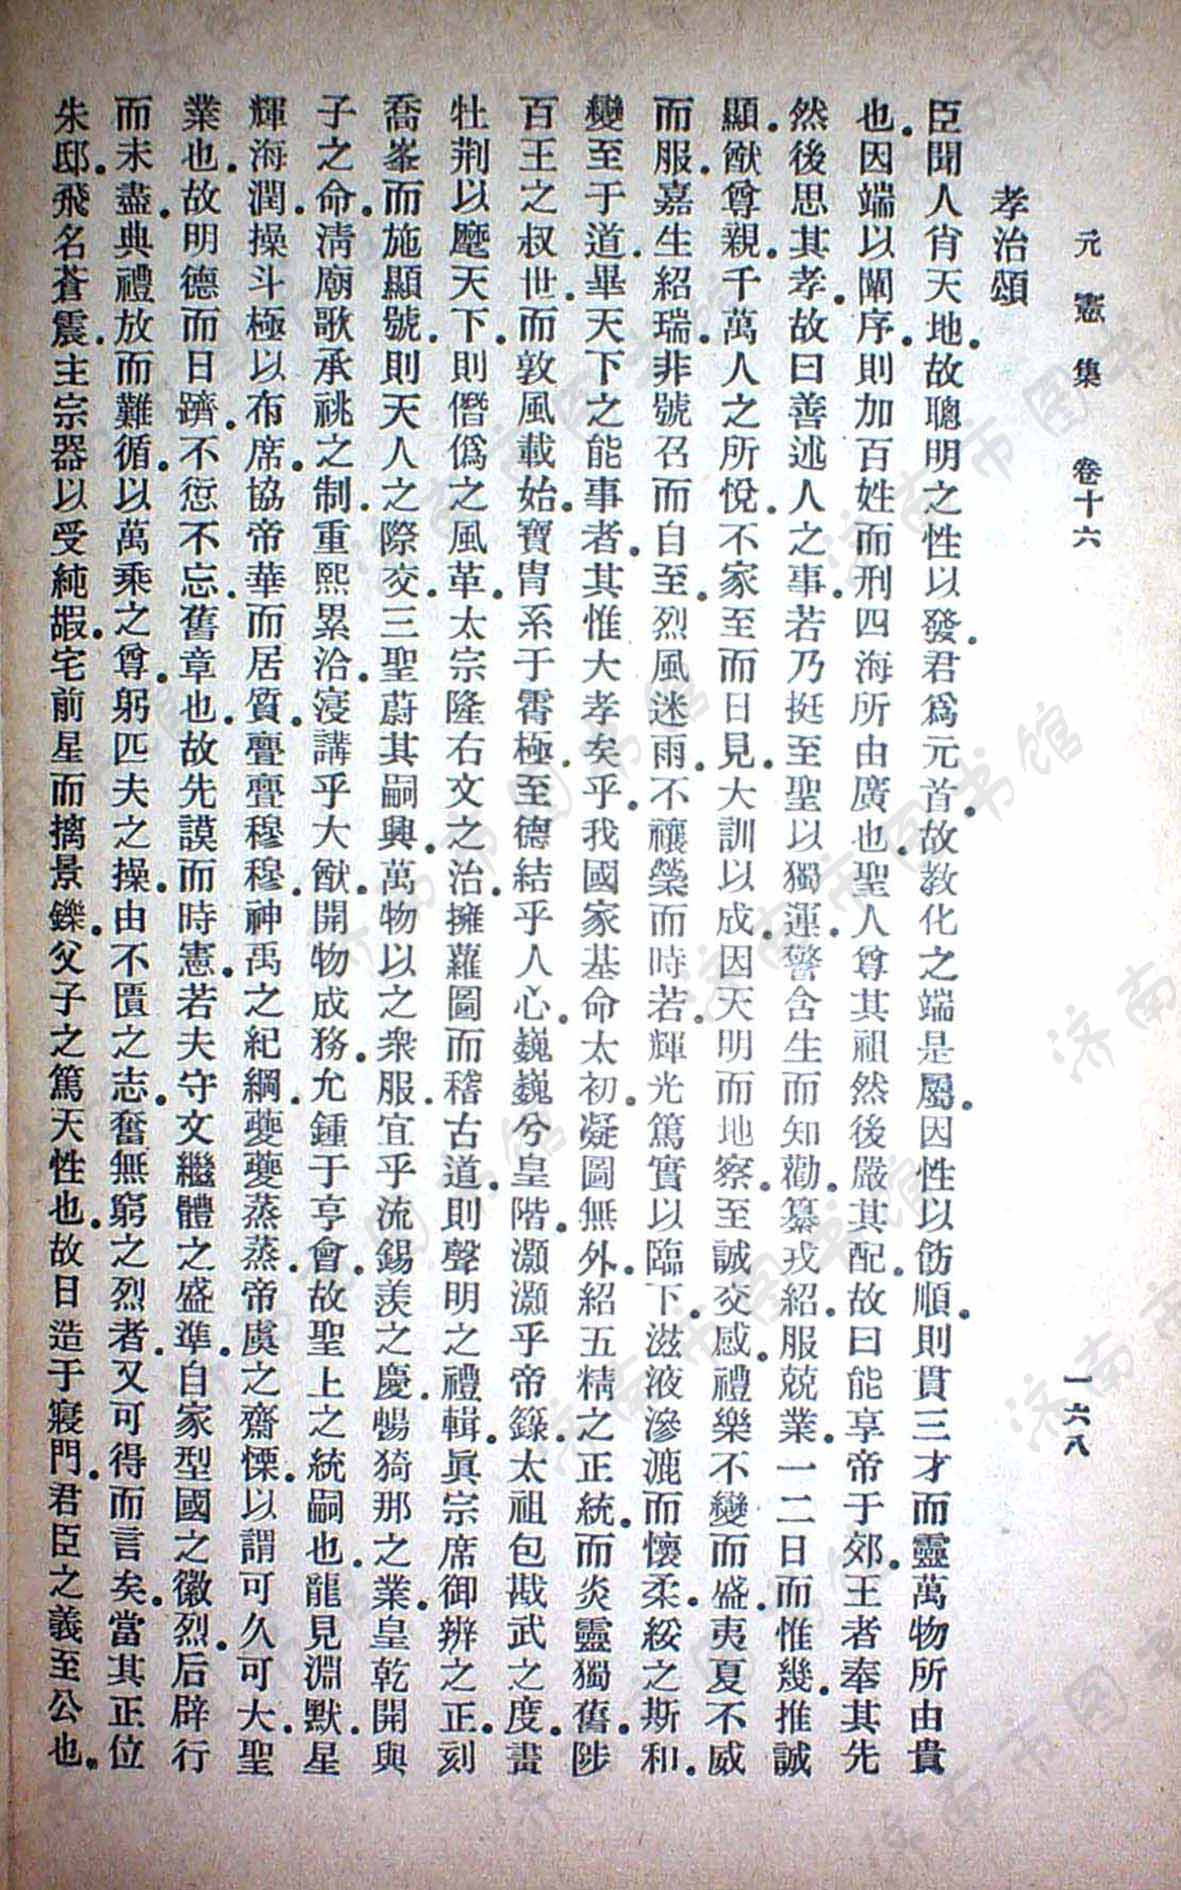 元憲集 卷十六 一六八
孝治頌
臣聞人肖天地。故聰明之性以發。君爲元首。故教化之端是屬。因性以飭順。則貫三才而靈萬物所由貴
也。因端以闡序。則加百姓而刑四海所由廣也。聖人尊其祖然後嚴其配。故曰能享帝于郊。王者奉其先
然後思其孝。故曰善述人之事。若乃挺至聖以獨運。警含生而知勸。纂戎紹服兢業。一二日而惟幾。推誠
顯。猷尊親。千萬人之所悅。不家至而日見。大訓以成。因天明而地察。至誠交感。禮樂不變而盛。夷夏不威
而服。嘉生紹瑞。非號召而自至。烈風迷雨。不禳禜而時若。輝光篤實以臨下。滋液滲漉而懷柔。綏之斯和。
變至于道。畢天下之能事者。其惟大孝矣乎。我國家基命太初。凝圖無外。紹五精之正統。而炎靈獨舊。陟
百王之叔世。而敦風載始。寶胄系于霄極。至德結乎人心。巍巍兮皇階。灝灝乎帝籙。太祖包戡武之度。畫
牡荆以麾天下。則僭僞之風革。太宗隆右文之治。擁蘿圖而稽古道。則聲明之禮輯。眞宗席御辨之正。刻
喬峯而施顯號。則天人之際交。三聖蔚其嗣興。萬物以之衆服。宜乎流錫羨之慶。暢猗那之業。皇乾開與
子之命。清廟歌承祧之制。重熙累洽。寖講乎大猷。開物成務。允鍾于亨會。故聖上之統嗣也。龍見淵默。星
輝海潤。操斗極以布席。協帝華而居質。亹亹穆穆。神禹之紀綱。夔夔蒸蒸。帝虞之齋慄。以謂可久可大。聖
業也。故明德而日躋。不愆不忘。舊章也。故先謨而時憲。若夫守文繼體之盛準。自家型國之徽烈。后辟行
而未盡。典禮放而難循。以萬乘之尊。躬匹夫之操。由不匱之志。奮無窮之烈者。又可得而言矣。當其正位
朱邸。飛名蒼震。主宗器以受純嘏。宅前星而摛景鑠。父子之篤天性也。故日造于寢門。君臣之義至公也。